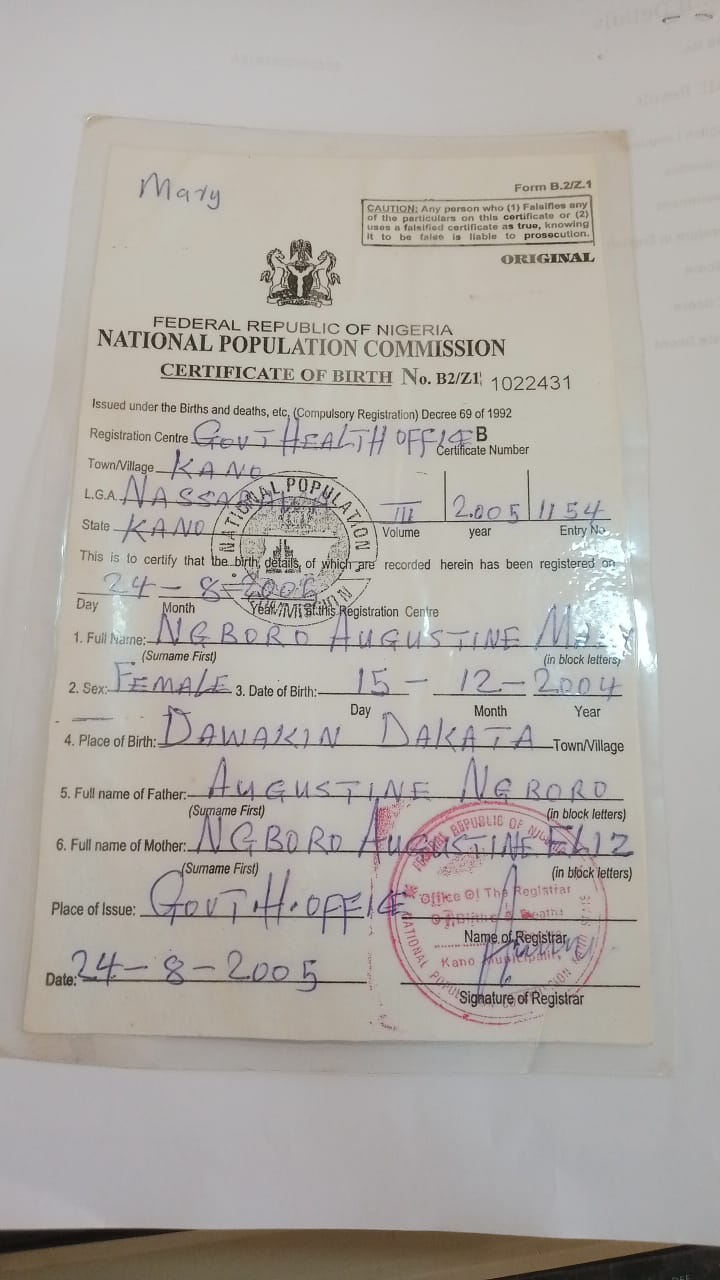 Mary
Form B.2/Z.1
CAUTION: Any person who (1) Falsifies any
of the particulars on this certificate or (2)
uses a falsified certificate as true, knowing
it to be false is liable to prosecution.
ORIGINAL
FEDERAL REPUBLIC OF NIGERIA
NATIONAL POPULATION COMMISSION
CERTIFICATE OF BIRTH No. B2/Z1 1022431
Issued under the Births and deaths, etc, (Compulsory Registration) Decree 69 of 1992
Registration Centre GOVT HEALTH OFFICE B
Certificate Number
Town/Village KANO
L.G.A. III 2005 1154
State KANO Volume year Entry No
NATIONAL POPULATION COMMISSION
This is to certify that the birth, details of which are recorded herein has been registered on
24 - 8 -
Day Month Year at this Registration Centre
1. Full Name: NGBORO AUGUSTINE MARY
(Surname First) (in block letters)
2. Sex: FEMALE 3. Date of Birth: 15 - 12 - 2004
Day Month Year
4. Place of Birth: DAWAKIN DAKATA Town/Village
5. Full name of Father: AUGUSTINE NGBORO
(Surname First) (in block letters)
6. Full name of Mother: NGBORO AUGUSTINE ELIZ
(Surname First) (in block letters)
Place of Issue: GOVT. H. OFFICE
Name of Registrar
Date: 24 - 8 - 2005
Signature of Registrar
FEDERAL REPUBLIC OF NIGERIA
Office Of The Registrar
Of Births & Deaths
Kano Municipality
NATIONAL POPULATION COMMISSION